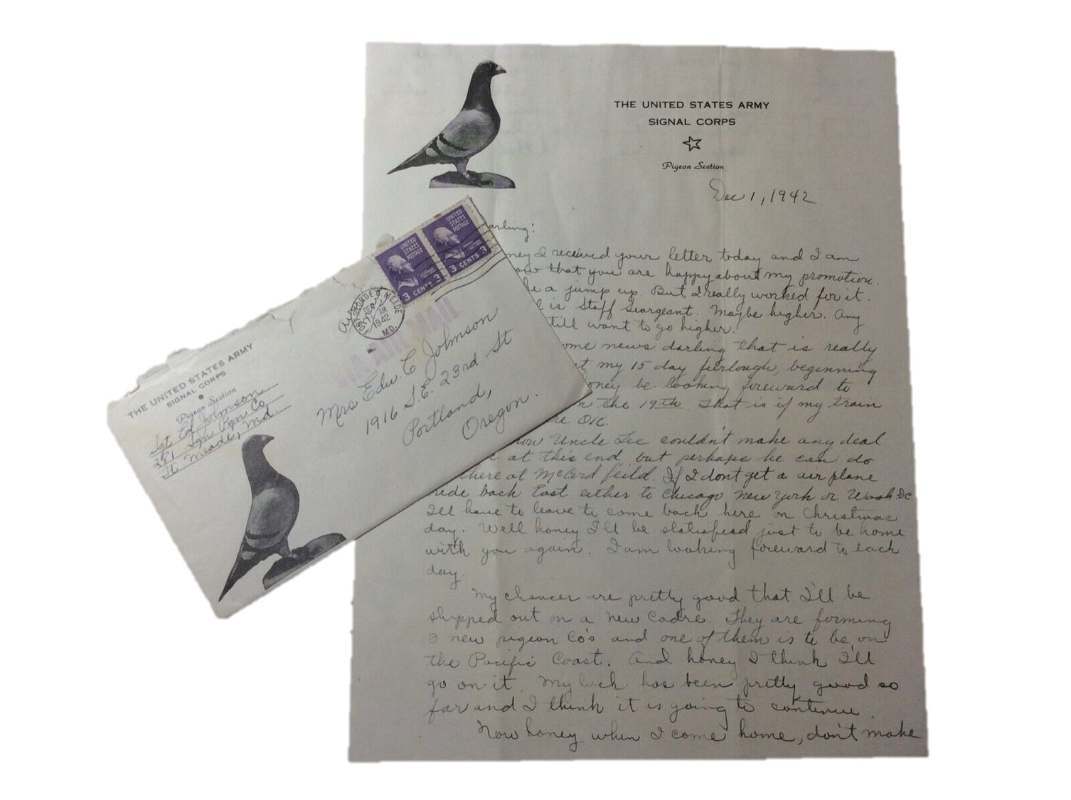 THE UNITED STATES ARMY
SIGNAL CORPS
Pigeon Section
Dec 1, 1942
arling:
ney I received your letter today and I am
ow that you are happy about my promotion.
a jump up But I really worked for it.
is Staff Seargeant. Maybe higher. Any
till want to go higher.
ome news darling that is really
my 15 day furlough, beginning
oney be looking foreward to
the 19th. That is if my train
OK.
Uncle Lee couldn't make any deal
at this end but perhaps he can do
here at McCord feild. If I dont get a air plane
ride back East either to Chicago New York or Wash DC
I'll have to leave to come back here on Christmas
day. Well honey I'll be satisfied just to be home
with you again. I am looking foreward to each
day.
My chances are pretty good that I'll be
shipped out on a new Cadre. They are forming
3 new pigeon Co's and one of them is to be on
the Pacific Coast. And honey I think I'll
go on it. My luck has been pretty good so
far and I think it is going to continue.
Now honey when I come home, don't make
UNITED STATES POSTAGE
3 CENTS 3
UNITED STATES POSTAGE
3 CENTS 3
1942
MD.
AIR MAIL
THE UNITED STATES ARMY
SIGNAL CORPS
Pigeon Section
Sgt. Ed Johnson
281 Sig. Pgn Co.
Ft. Meade, Md.
Mrs Edw C Johnson
1916 S.E. 23rd St
Portland,
Oregon.